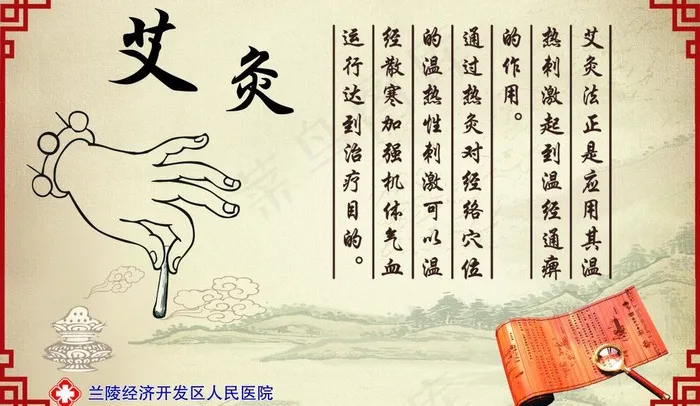 艾灸
艾灸法正是应用其温
热刺激起到温经通痹
的作用。
通过热灸对经络穴位
的温热性刺激可以温
经散寒加强机体气血
运行达到治疗目的。
兰陵经济开发区人民医院